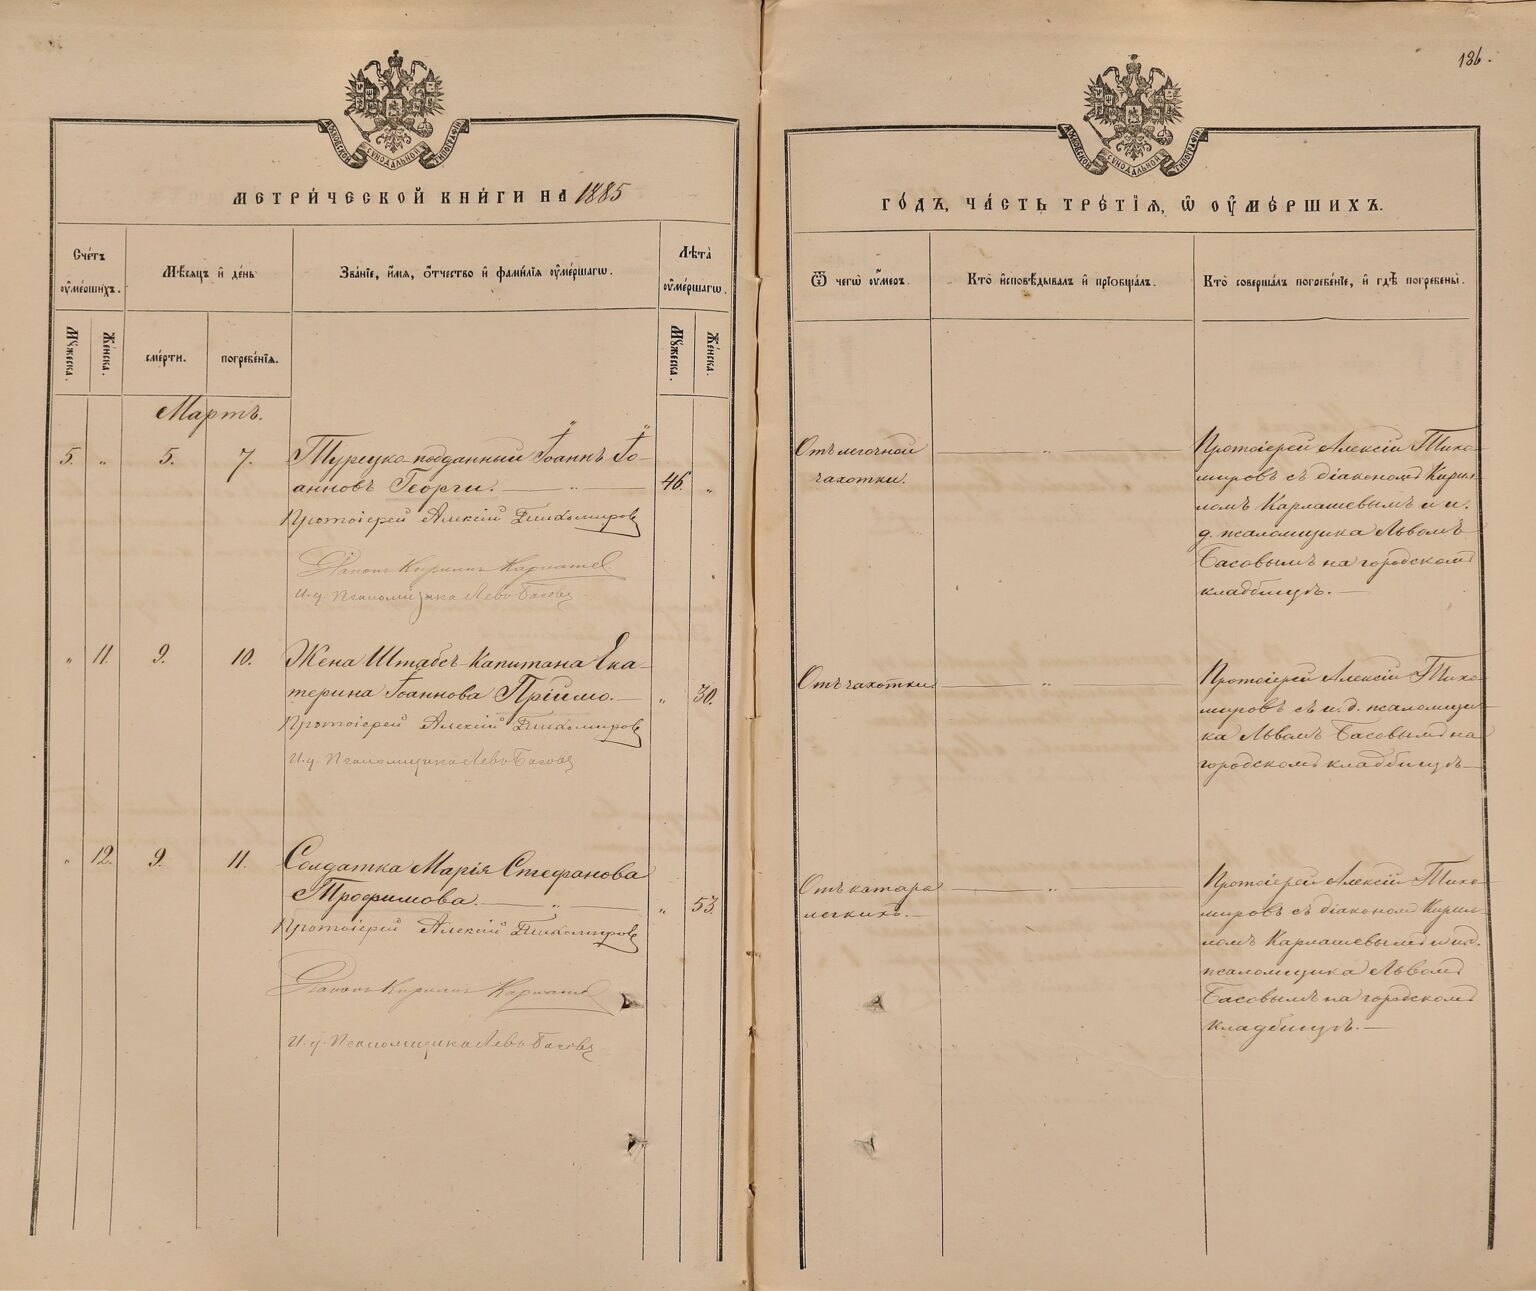 136.
МОСКОВСКОЙ СѴНОДАЛЬНОЙ ТИПОГРАФІИ
МОСКОВСКОЙ СѴНОДАЛЬНОЙ ТИПОГРАФІИ
МЕТРИ́ЧЕСКОЙ КНИ́ГИ НА 1885
ГО́ДЪ, ЧА́СТЬ ТРЕ́ТІѦ, Ѡ҆ ОУ҆МЕ́РШИХЪ.
Сче́тъ оу҆ме́ршихъ.
Мѣ́сяцъ и҆ де́нь
Зва́ніе, и҆́мя, ѻ҆́тчество и҆ фами́лія оу҆ме́ршагѡ.
Лѣ́та оу҆ме́ршагѡ.
Ѿ чегѡ̀ оу҆́меръ.
Кто̀ и҆сповѣ́дывалъ и҆ прїѻбща́лъ.
Кто̀ соверша́лъ погребе́ніе, и҆ гдѣ̀ погребены̀.
Мꙋ́жеска.
Же́нска.
сме́рти.
погребе́нія.
Мꙋ́жеска.
Же́нска.
Мартъ.
5. „ 5. 7. Турецко-подданный Іоаннъ Іо-
анновъ Георги. — „ — 46. „
Протоіерей Алексій Тихомировъ
Діаконъ Кириллъ Карлашев
И. д. Псаломщика Левъ Басовъ
Отъ легочной
чахотки.
— „ —
Протоіерей Алексій Тихо-
мировъ съ діакономъ Кирил-
ломъ Карлашевымъ и и.
д. псаломщика Львомъ
Басовымъ на городскомъ
кладбищѣ. —
„ 11. 9. 10. Жена Штабсъ-Капитана Ека-
терина Іоаннова Прiймо. — „ 30.
Протоіерей Алексій Тихомировъ
И. д. Псаломщика Левъ Басовъ
Отъ чахотки.
— „ —
Протоіерей Алексій Тихо-
мировъ съ и. д. псаломщи-
ка Львомъ Басовымъ на
городскомъ кладбищѣ —
„ 12. 9. 11. Солдатка Марія Стефанова
Трофимова. — „ — „ 53.
Протоіерей Алексій Тихомировъ
Діаконъ Кириллъ Карлашев
И. д. Псаломщика Левъ Басовъ
Отъ катара
легкихъ. —
— „ —
Протоіерей Алексій Тихо-
мировъ съ діакономъ Кирил-
ломъ Карлашевымъ и и.д.
псаломщика Львомъ
Басовымъ на городскомъ
кладбищѣ. —